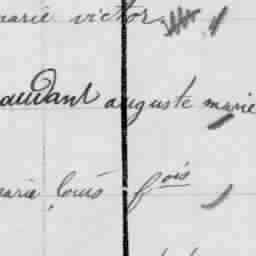 marie victor
audant auguste marie
marie louis fois